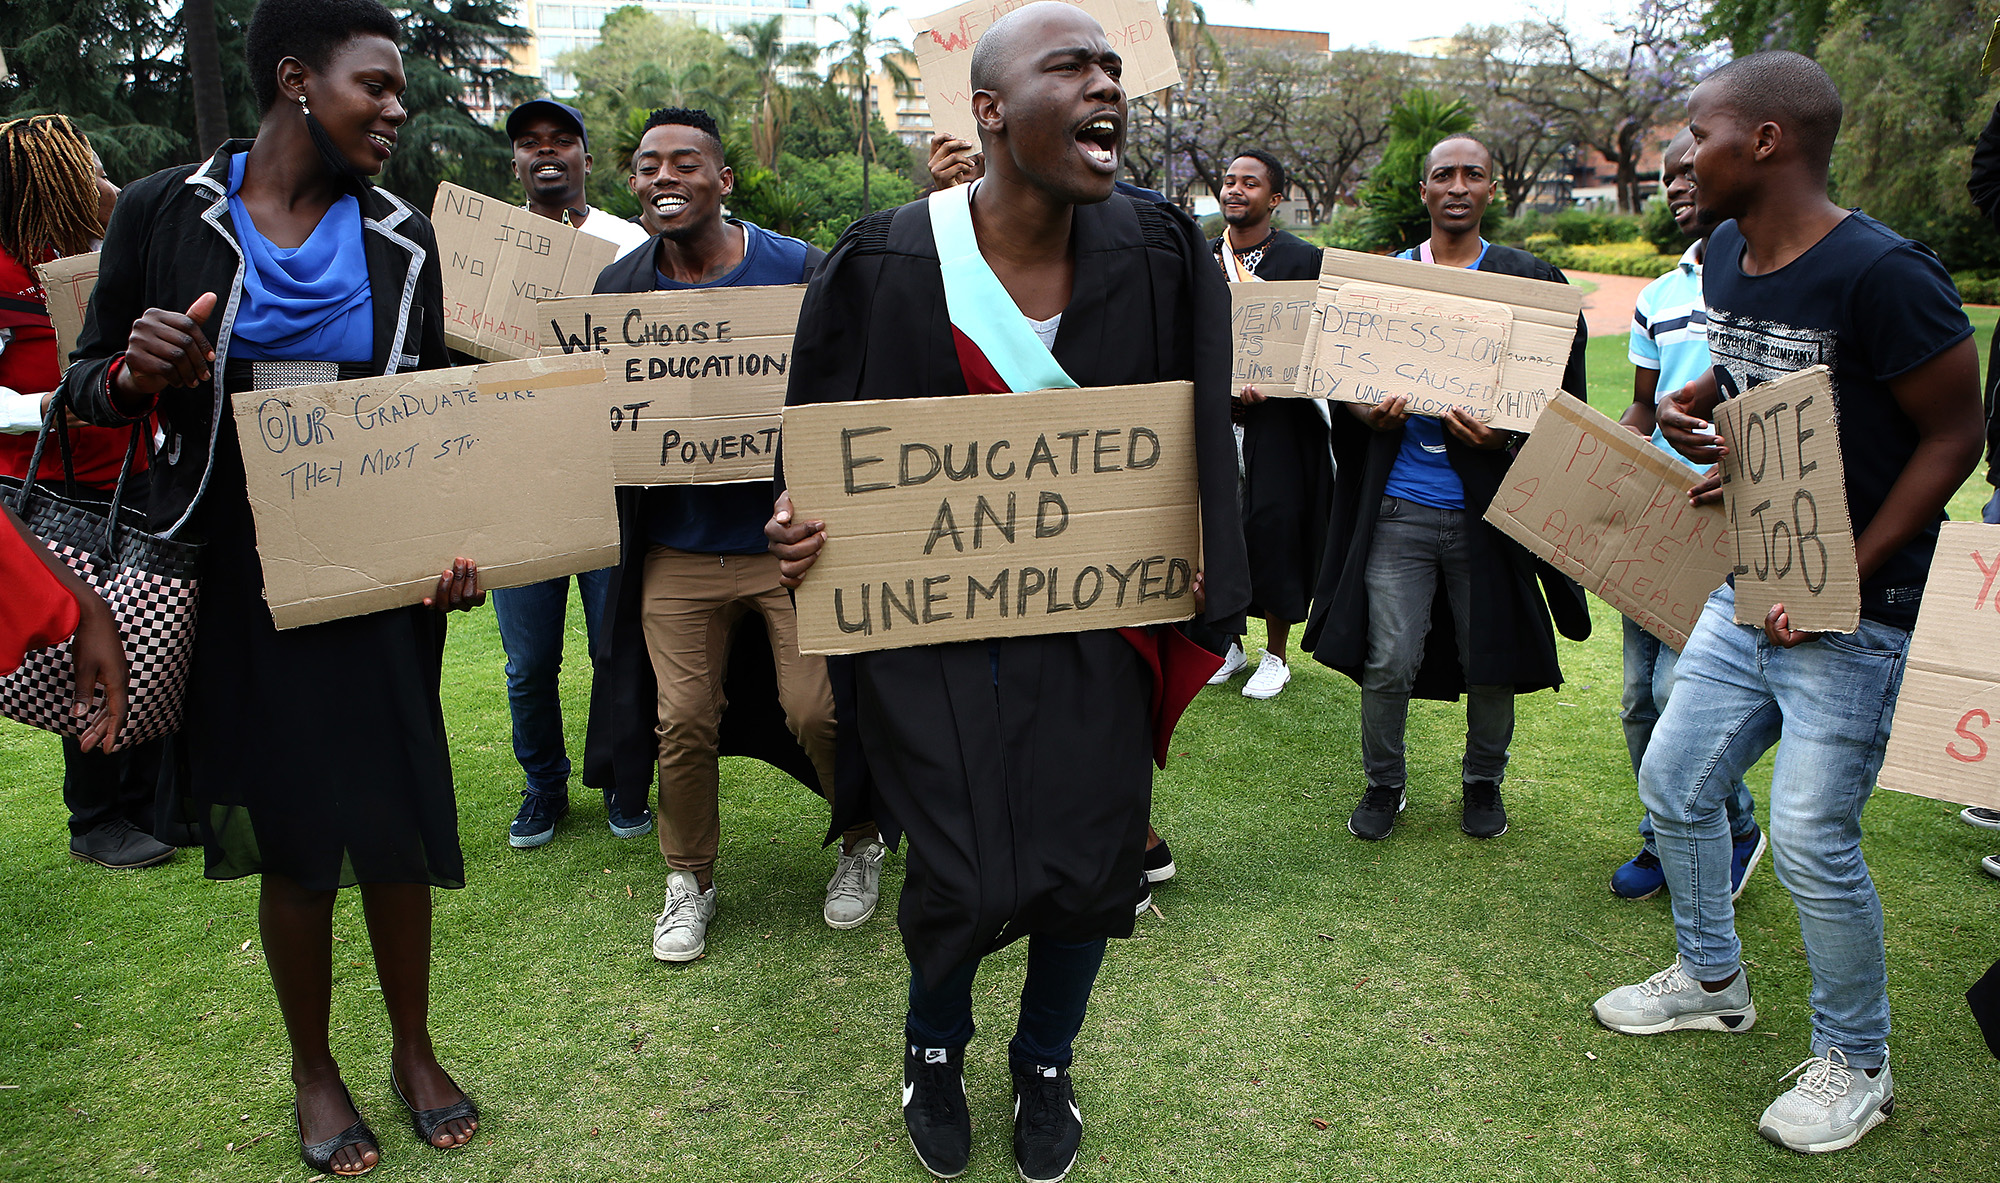 WE ARE
OYED
W
NO JOB
NO VOTE
SIKHATH
WE CHOOSE
EDUCATION
OT
POVERT
OUR GRADUATE ARE
THEY MOST
EDUCATED
AND
UNEMPLOYED
VERT
IS
DEPRESSION
IS CAUSED
BY UNEMPLOYMENT
PLZ HIRE
ME
I AM TEACH
BY PROFFESS
COMPANY
1 VOTE
1 JOB
Y
S